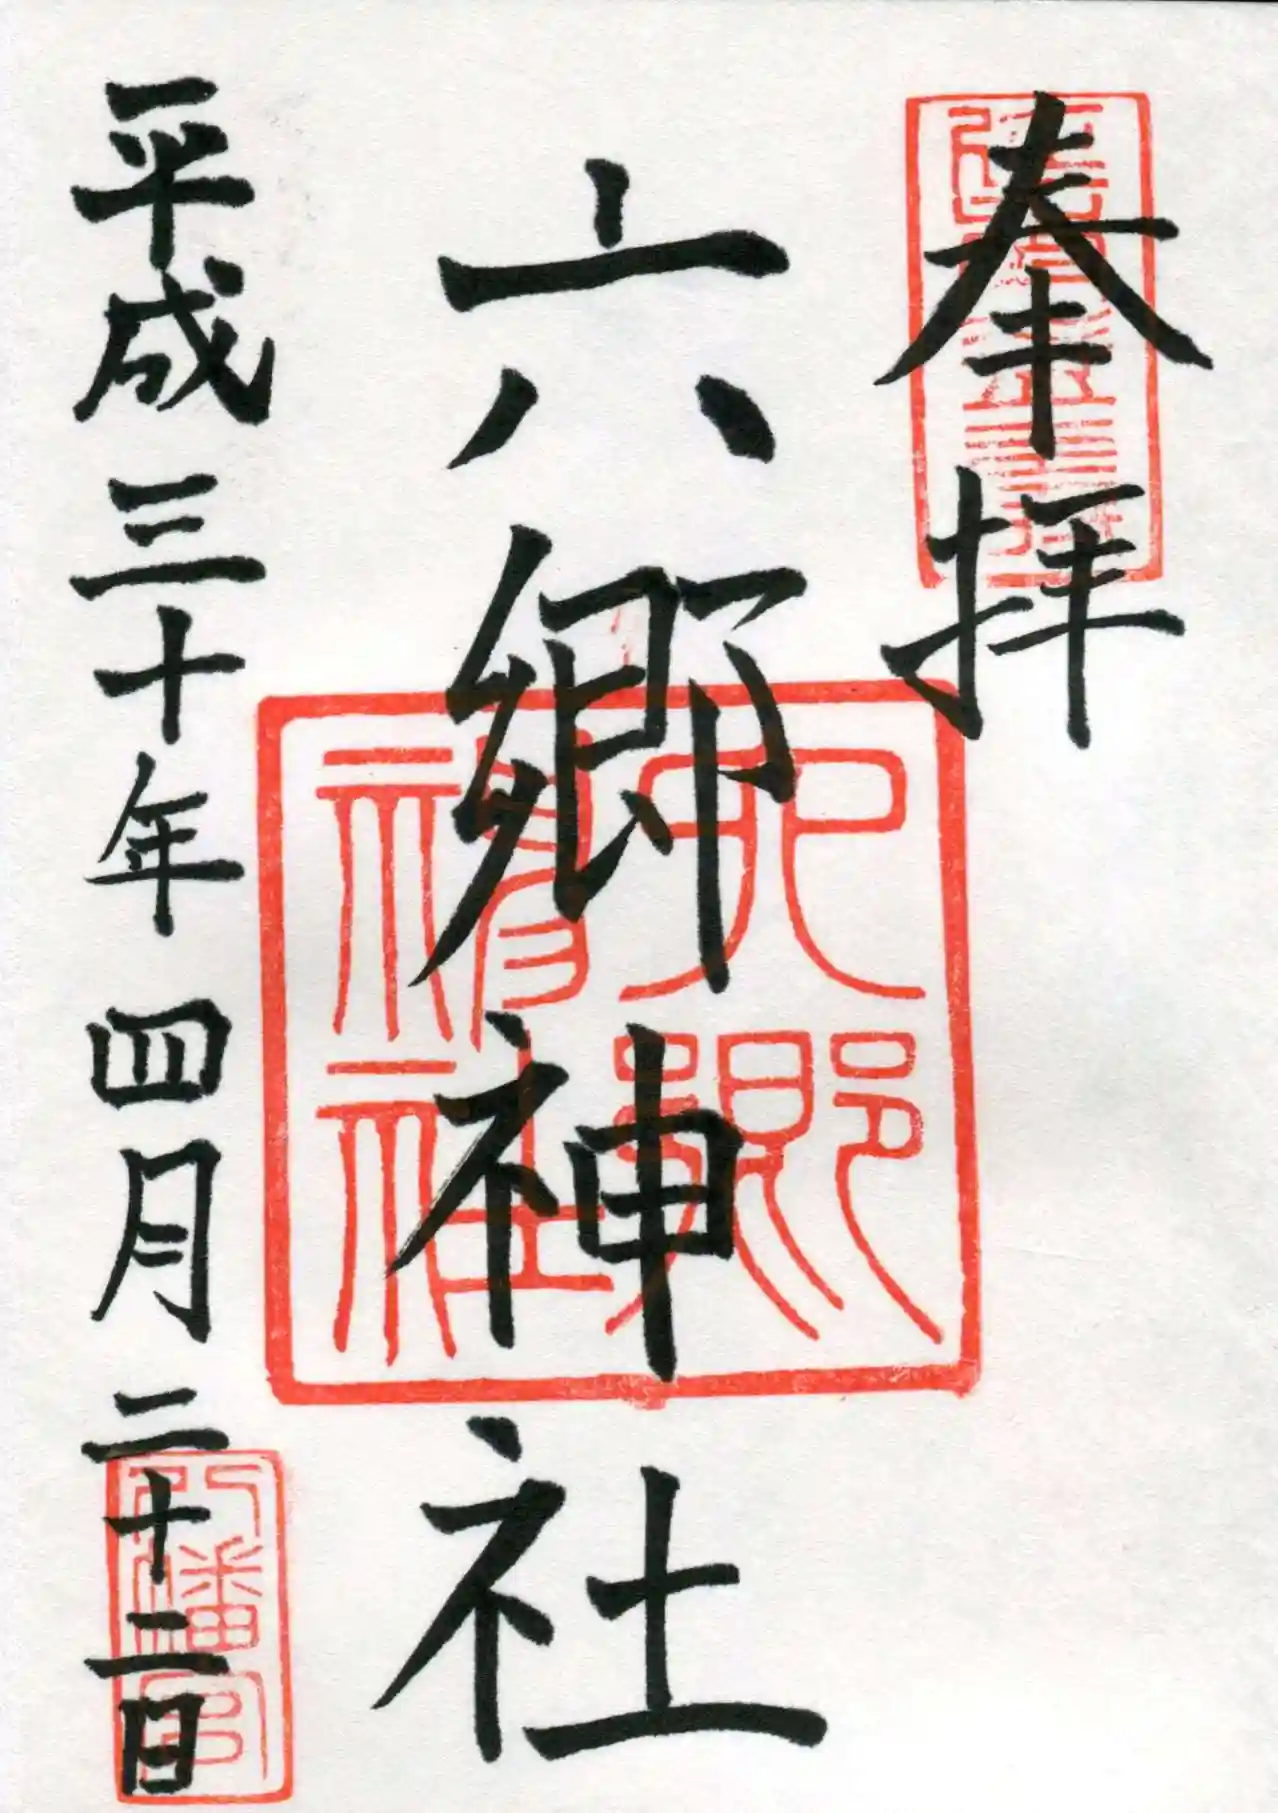 奉拝
六郷神社
六郷
神社
平成三十年四月二十二日
八幡宮